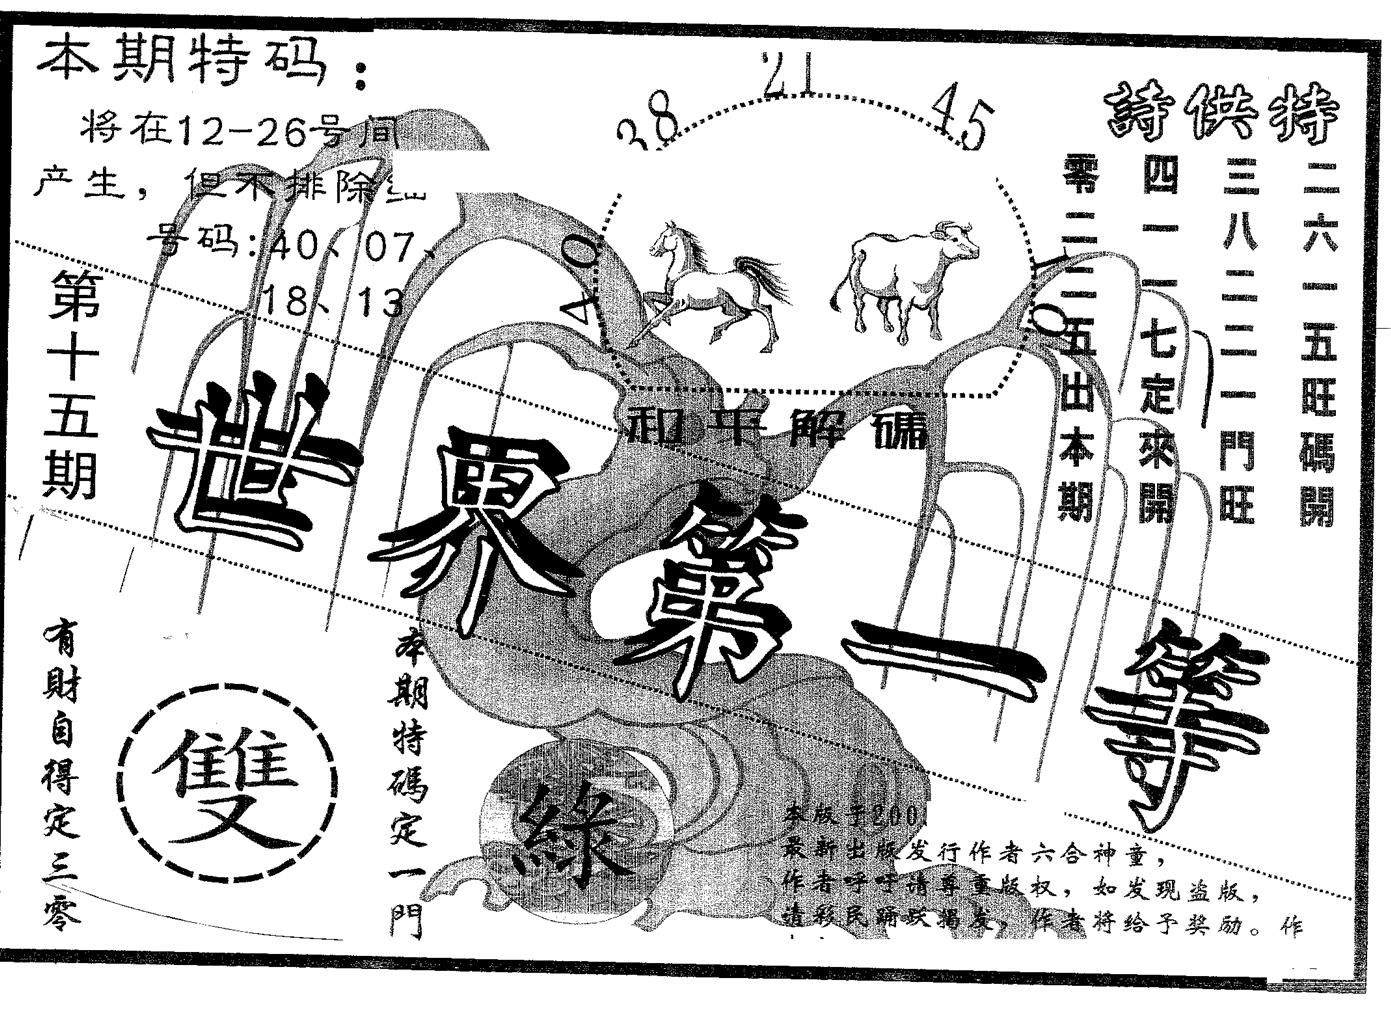 本期特码：
将在12-26号间
产生，但不排除
号码:40、07、
18、13
第十五期
38
21
45
40
10
和平解碼
特供詩
二六一五旺碼開
三八二二一門旺
四一一七定來開
零二二五出本期
世界第一等
有財自得定三零
雙
本期特碼定一門
綠
本版于200
最新出版发行作者六合神童，
作者呼吁请尊重版权，如发现盗版，
请彩民踊跃揭发，作者将给予奖励。作